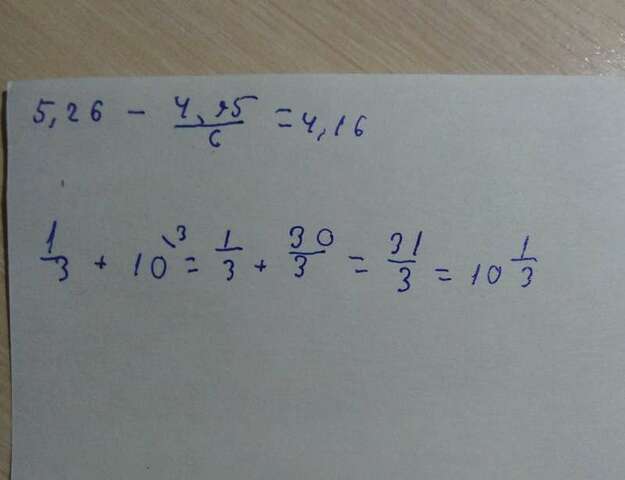 5,26 - 4,95/6 = 4,16
1/3 + 10^{\3} = 1/3 + 30/3 = 31/3 = 10 1/3